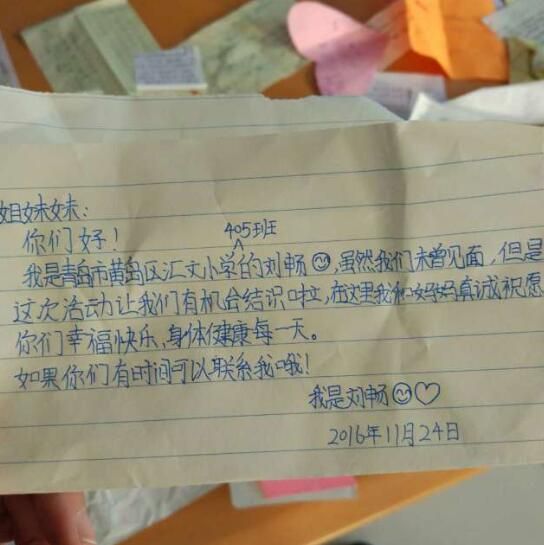 姐妹妹：
你们好！
405班
我是青岛市黄岛区汇文小学的刘畅，虽然我们未曾见面，但是
这次活动让我们有机会结识啦，在这里我和妈妈真诚祝愿
你们幸福快乐，身体健康每一天。
如果你们有时间可以联系我哦！
我是刘畅
2016年11月24日